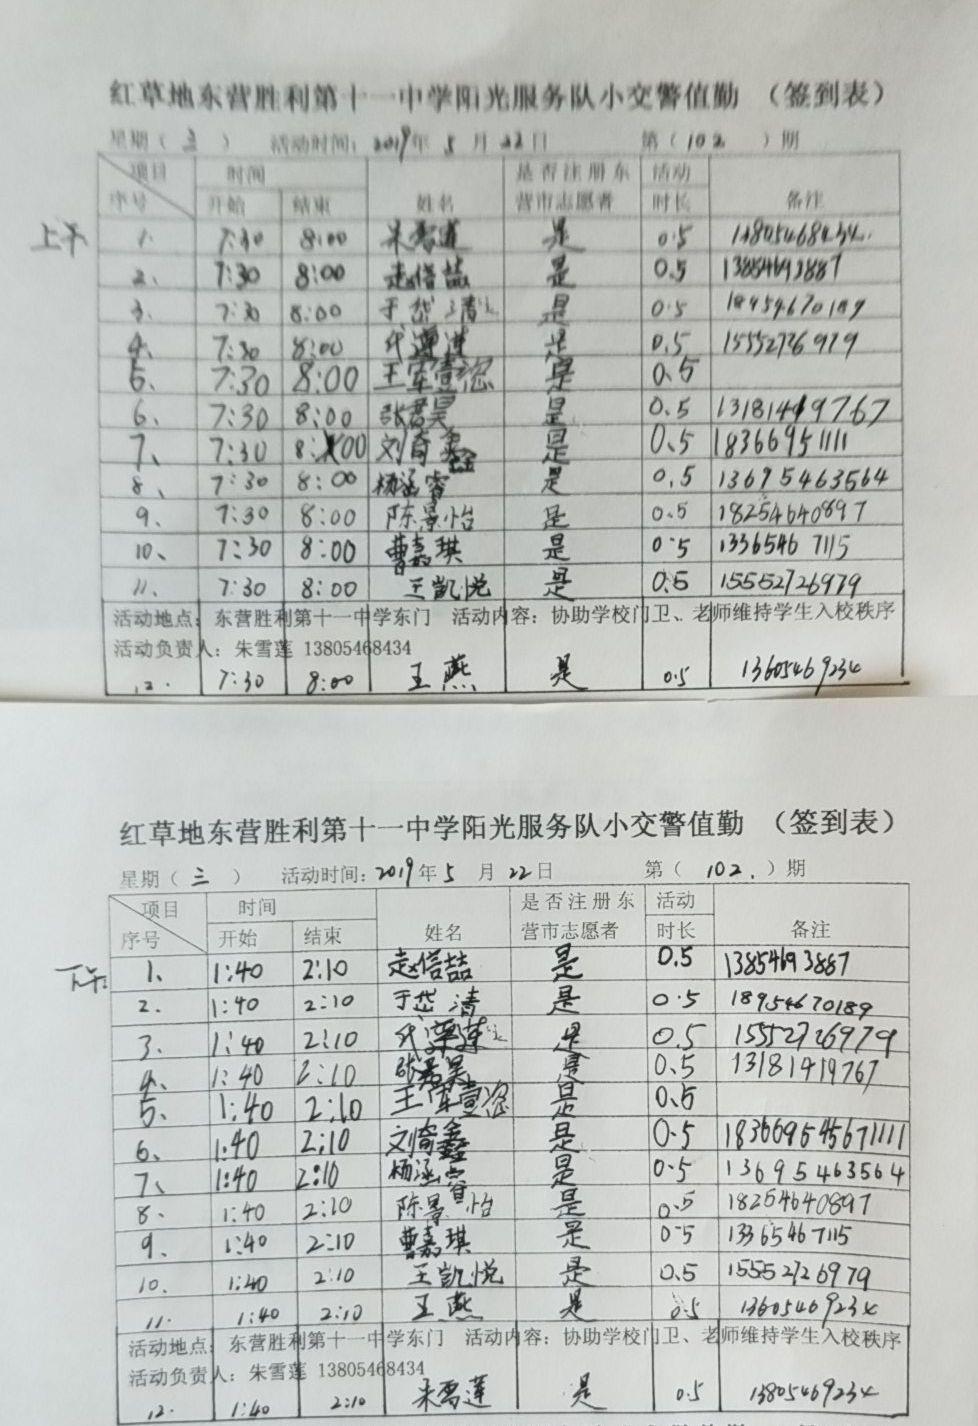 红草地东营胜利第十一中学阳光服务队小交警值勤 （签到表）
星期（ 三 ） 活动时间：2019年 5 月 22日 第（102 ）期
项目 时间 是否注册东 活动
序号 开始 结束 姓名 营市志愿者 时长 备注
上午
1. 7:30 8:00 朱雪莲 是 0.5
2. 7:30 8:00 赵信喆 是 0.5 13854693887
3. 7:30 8:00 于岱清 是 0.5 18954670189
4、 7:30 8:00 是 0.5 15552726979
5、 7:30 8:00 王军壹 是 0.5
6、 7:30 8:00 张君昊 是 0.5 13181419767
7、 7:30 8:00 刘奇鑫 是 0.5 18366951111
8、 7:30 8:00 杨涵睿 是 0.5 13695463564
9、 7:30 8:00 陈景怡 是 0.5 18254640897
10、 7:30 8:00 曹嘉琪 是 0.5 1336546 7115
11. 7:30 8:00 王凯悦 是 0.5 15552726979
活动地点：东营胜利第十一中学东门 活动内容：协助学校门卫、老师维持学生入校秩序
活动负责人：朱雪莲 13805468434
12. 7:30 8:00 王燕 是 0.5 13605469234
红草地东营胜利第十一中学阳光服务队小交警值勤 （签到表）
星期（ 三 ） 活动时间：2019年 5 月 22日 第（ 102. ）期
项目 时间 是否注册东 活动
序号 开始 结束 姓名 营市志愿者 时长 备注
下午:
1、 1:40 2:10 赵信喆 是 0.5 13854693887
2. 1:40 2:10 于岱清 是 0.5 18954670189
3. 1:40 2:10 是 0.5 15552726979
4、 1:40 2:10 张君昊 是 0.5 13181419767
5、 1:40 2:10 王军壹 是 0.5
6、 1:40 2:10 刘奇鑫 是 0.5 18366954567 1111
7、 1:40 2:10 杨涵睿 是 0.5 13695463564
8. 1:40 2:10 陈景怡 是 0.5 18254640897
9、 1:40 2:10 曹嘉琪 是 0.5 13365467115
10. 1:40 2:10 王凯悦 是 0.5 15552726979
11. 1:40 2:10 王燕 是 0.5 13605469234
活动地点：东营胜利第十一中学东门 活动内容：协助学校门卫、老师维持学生入校秩序
活动负责人：朱雪莲 13805468434
12. 1:40 2:10 朱雪莲 是 0.5 13805469234